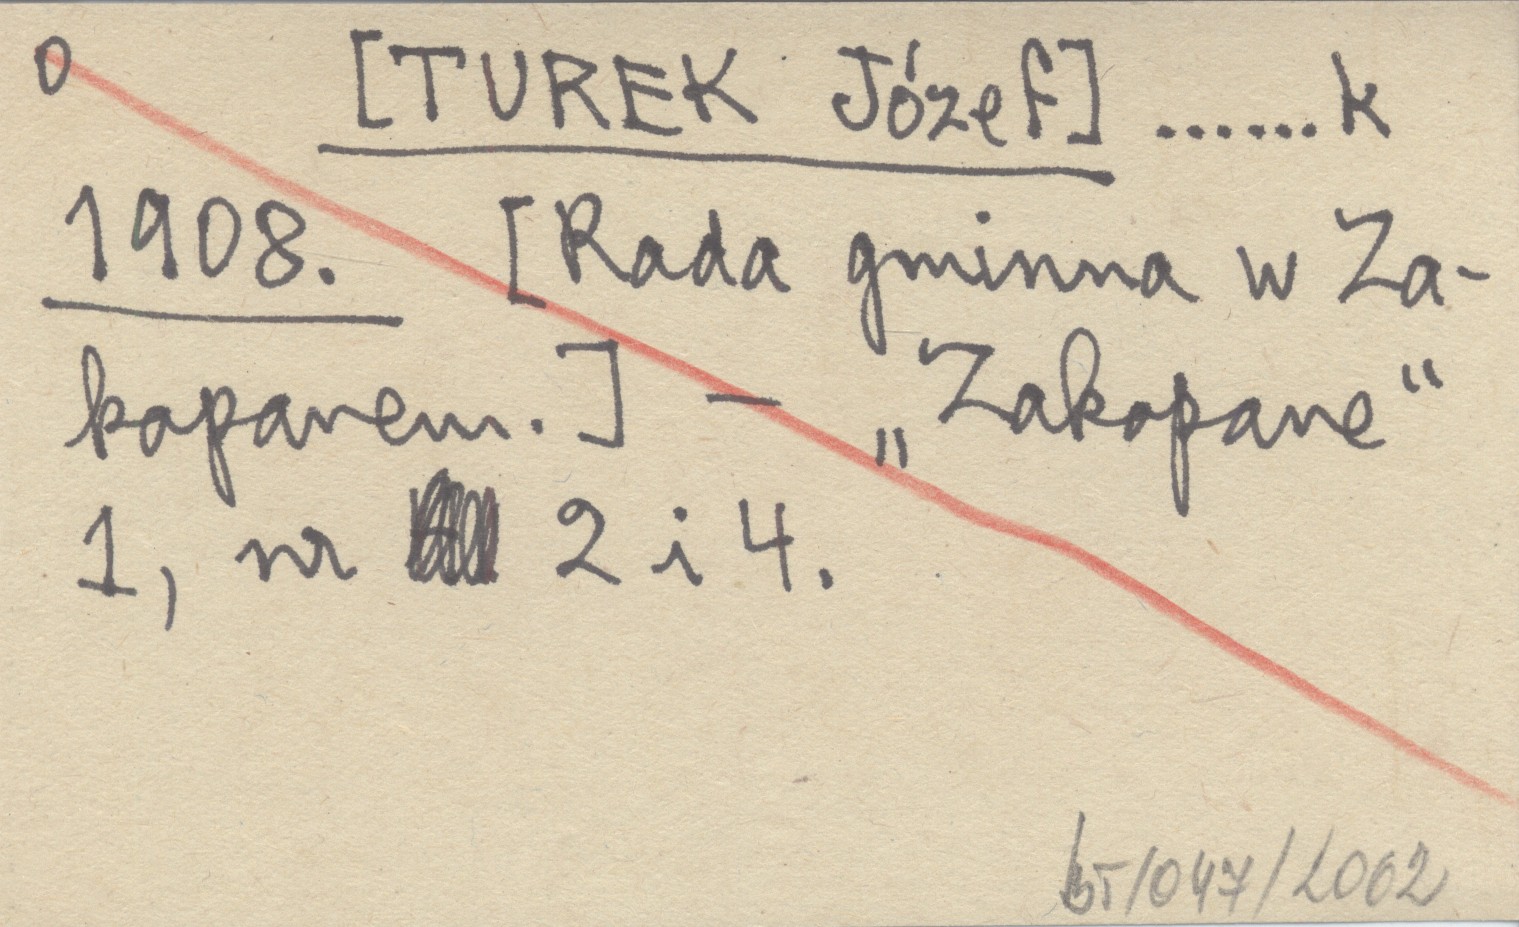 0 [TUREK Józef] ......k
1908. [Rada gminna w Za-
kopanem.] — „Zakopane“
1, nr 2 i 4.
bT/047/2002